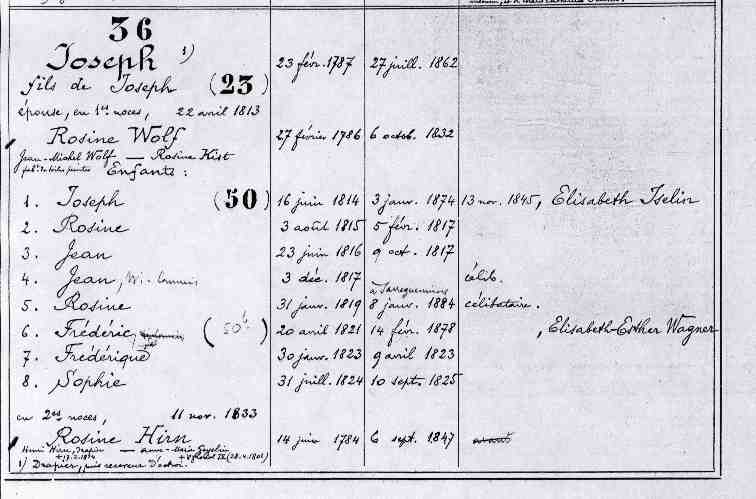 36
Joseph 1) 23 févr. 1787 27 juill. 1862
fils de Joseph (23)
épouse, en 1res noces, 22 avril 1813
Rosine Wolf 27 février 1786 6 octob. 1832
Jean-Michel Wolf — Rosine Kist
fabt. de toiles peintes
Enfants:
1. Joseph (50) 16 juin 1814 3 janv. 1874 13 nov. 1845, Elisabeth Iselin
2. Rosine 3 août 1815 5 févr. 1817
3. Jean 23 juin 1816 9 oct. 1817
4. Jean, 3 déc. 1817 célib.
à Sarreguemines
5. Rosine 31 janv. 1819 8 janv. 1884 célibataire.
6. Frédéric, (50b) 20 avril 1821 14 fév. 1878 , Elisabeth-Esther Wagner
7. Frédérique 30 janv. 1823 9 avril 1823
8. Sophie 31 juill. 1824 10 sept. 1825
en 2es noces, 11 nov. 1833
Rosine Hirn 14 juin 1784 6 sept. 1847
Henri Hirn, drapier —
1) Drapier, puis receveur d'octroi.